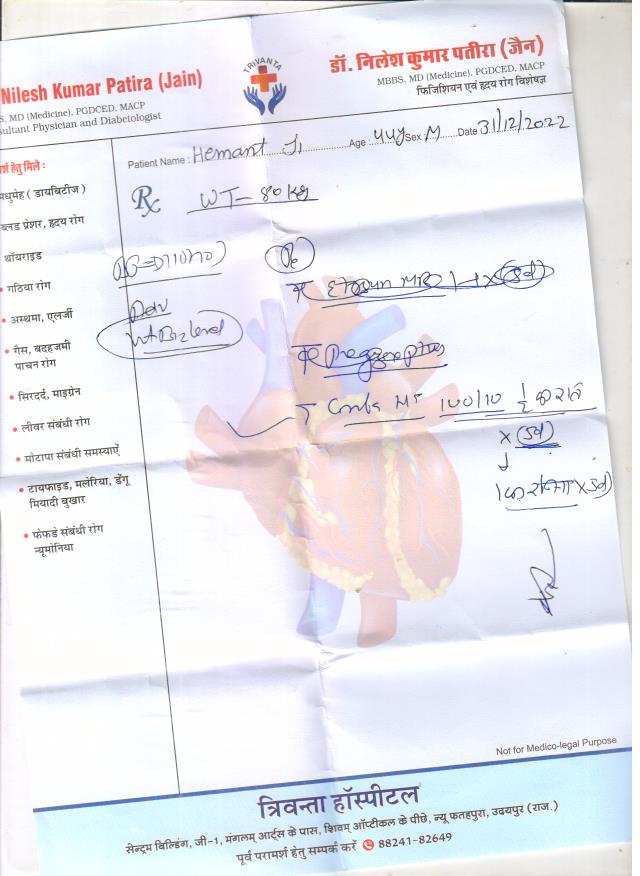 Nilesh Kumar Patira (Jain)
S, MD (Medicine), PGDCED, MACP
sultant Physician and Diabetologist
TRIVANTA
डॉ. निलेश कुमार पतीरा (जैन)
MBBS, MD (Medicine), PGDCED, MACP
फिजिशियन एवं हृदय रोग विशेषज्ञ
Patient Name : Hemant Ji Age : 44y Sex M Date 31/12/2022
Rx WT - 80 kg
र्श हेतु मिले :
मधुमेह ( डायबिटीज )
ब्लड प्रेशर, हृदय रोग
थॉयराइड
• गठिया रोग
• अस्थमा, एलर्जी
• गैस, बदहजमी
पाचन रोग
• सिरदर्द, माइग्रेन
• लीवर संबंधी रोग
• मोटापा संबंधी समस्याऐं
• टायफाइड, मलेरिया, डेंगू
मियादी बुखार
• फेफडे संबंधी रोग
न्यूमोनिया
100/10
Not for Medico-legal Purpose
त्रिवन्ता हॉस्पीटल
सेन्ट्रम बिल्डिंग, जी-1, मंगलम् आर्ट्स के पास, शिवम् ऑप्टीकल के पीछे, न्यू फतहपुरा, उदयपुर (राज.)
पूर्व परामर्श हेतु सम्पर्क करें 88241-82649